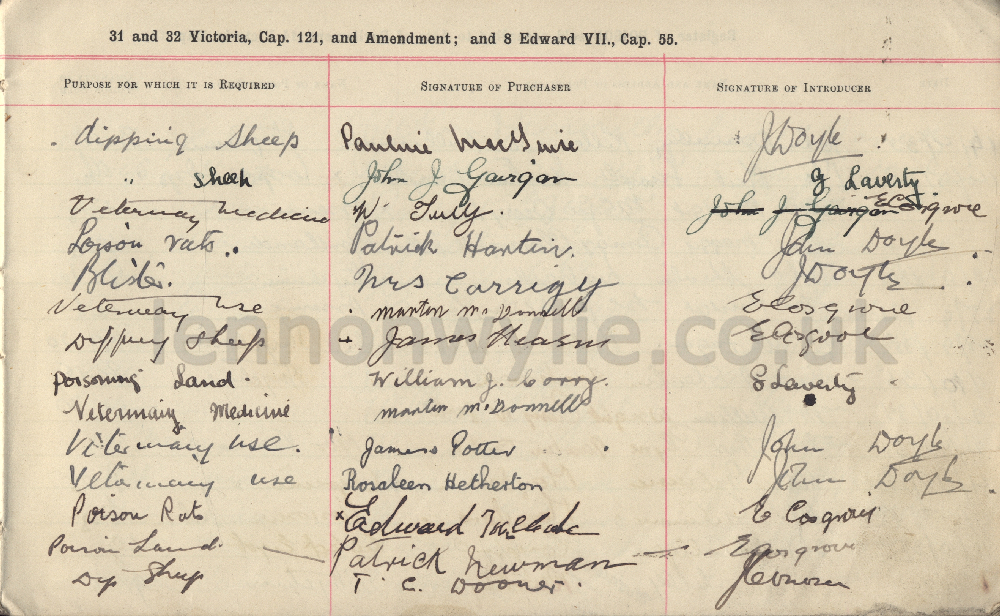 31 and 32 Victoria, Cap. 121, and Amendment; and 8 Edward VII., Cap. 55.
Purpose for which it is Required Signature of Purchaser Signature of Introducer
dipping sheep Pauline MacGuire J Doyle
" sheep John J. Gargan G Laverty
Veterinary medicine W. Tully. John J Gargan E Cosgrove
Poison rats. Patrick Hartin. John Doyle
Blister. Mrs Carrigy J Doyle
Veterinary use Martin McDonnell E Cosgrove
Dipping sheep James Hearns E Cosgrove
poisoning Land. William J. Corry. G Laverty
Veterinary Medicine Martin McDonnell
Veterinary use. James Potter John Doyle
Veterinary use Rosaleen Hetherton John Doyle
Poison Rats x Edward E Cosgrove
Poison Land. Patrick Newman E Cosgrove
Dip Sheep T. C. Dooner.
lennonwylie.co.uk